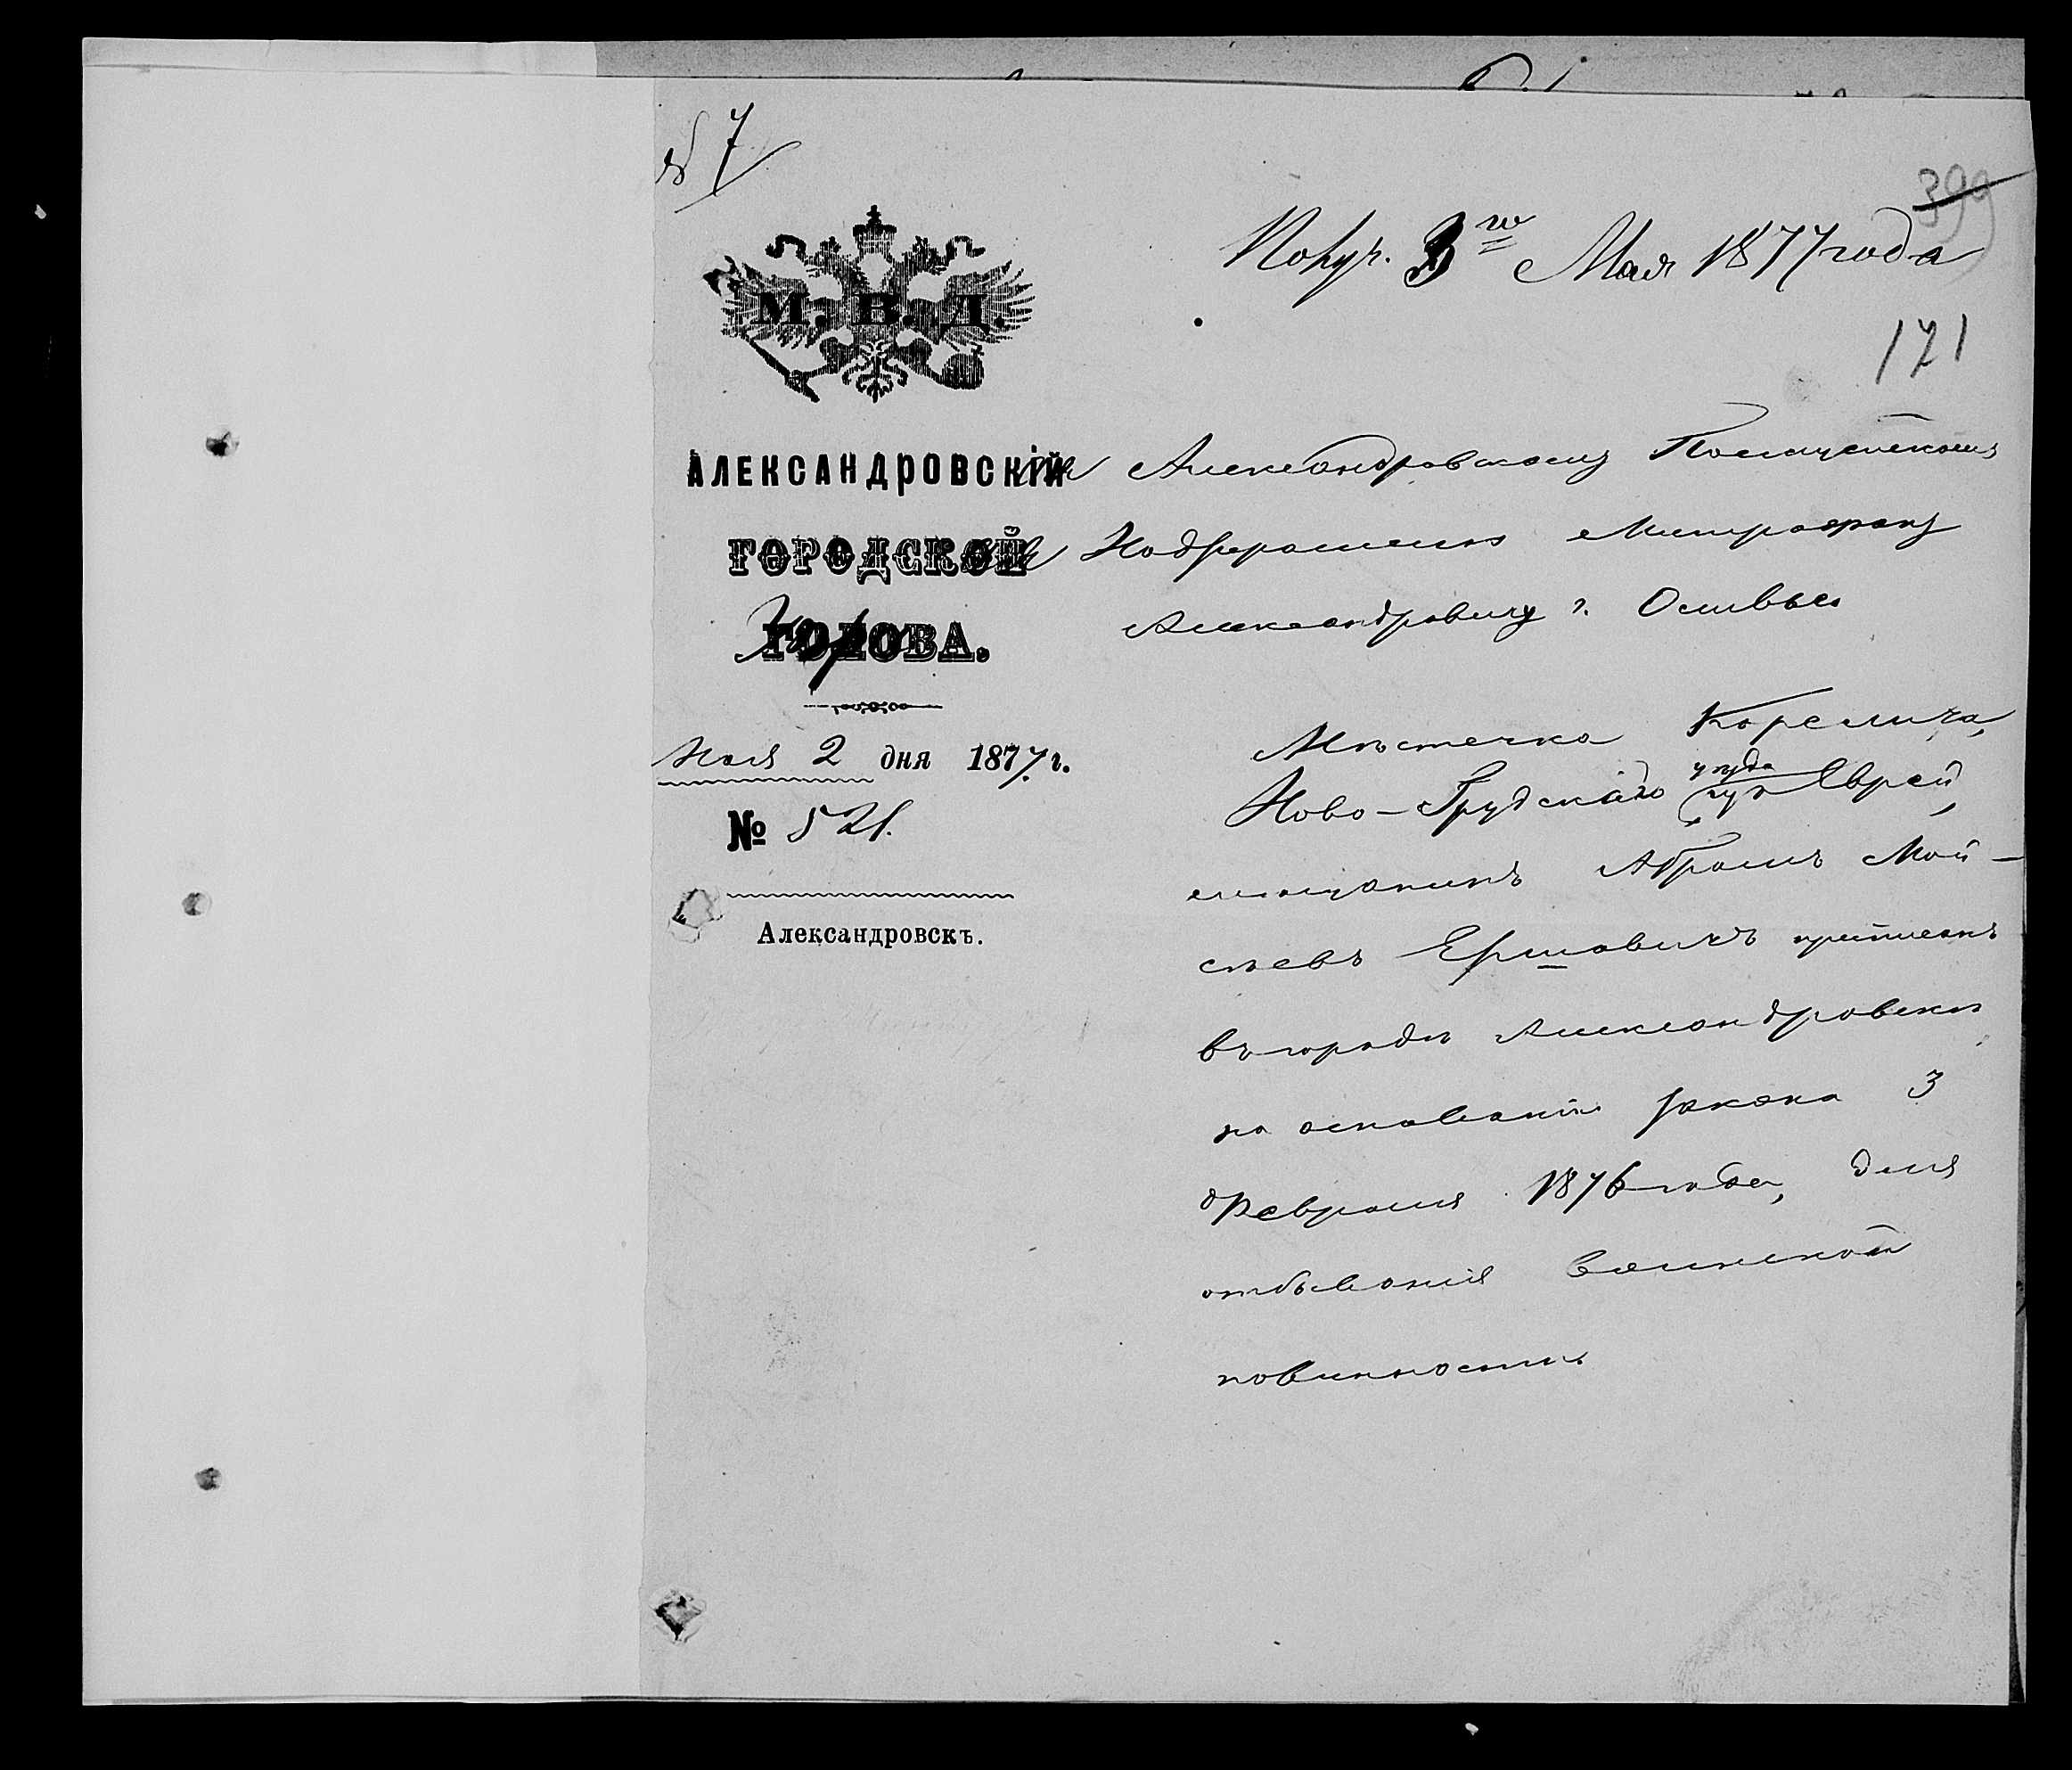 № 7
399
Получ. 3го Мая 1877 года
121
М. В. Д.
АЛЕКСАНДРОВСКІЙ
ГОРОДСКОЙ
ГОЛОВА.
Мая 2 дня 1877 г.
№ 521.
Александровскъ.
Александровскому Полицейскому
Надзирателю Митрофану
Александровичу г.
Мѣстечка Корелича,
Ново-Грудскаго уѣзда Еврей,
мѣщанинъ Абрамъ Мой-
сѣевъ Ершовичъ приписанъ
въ городѣ Александровскѣ
на основаніи указа 3
Февраля 1876 года, для
отбыванія воинской
повинности